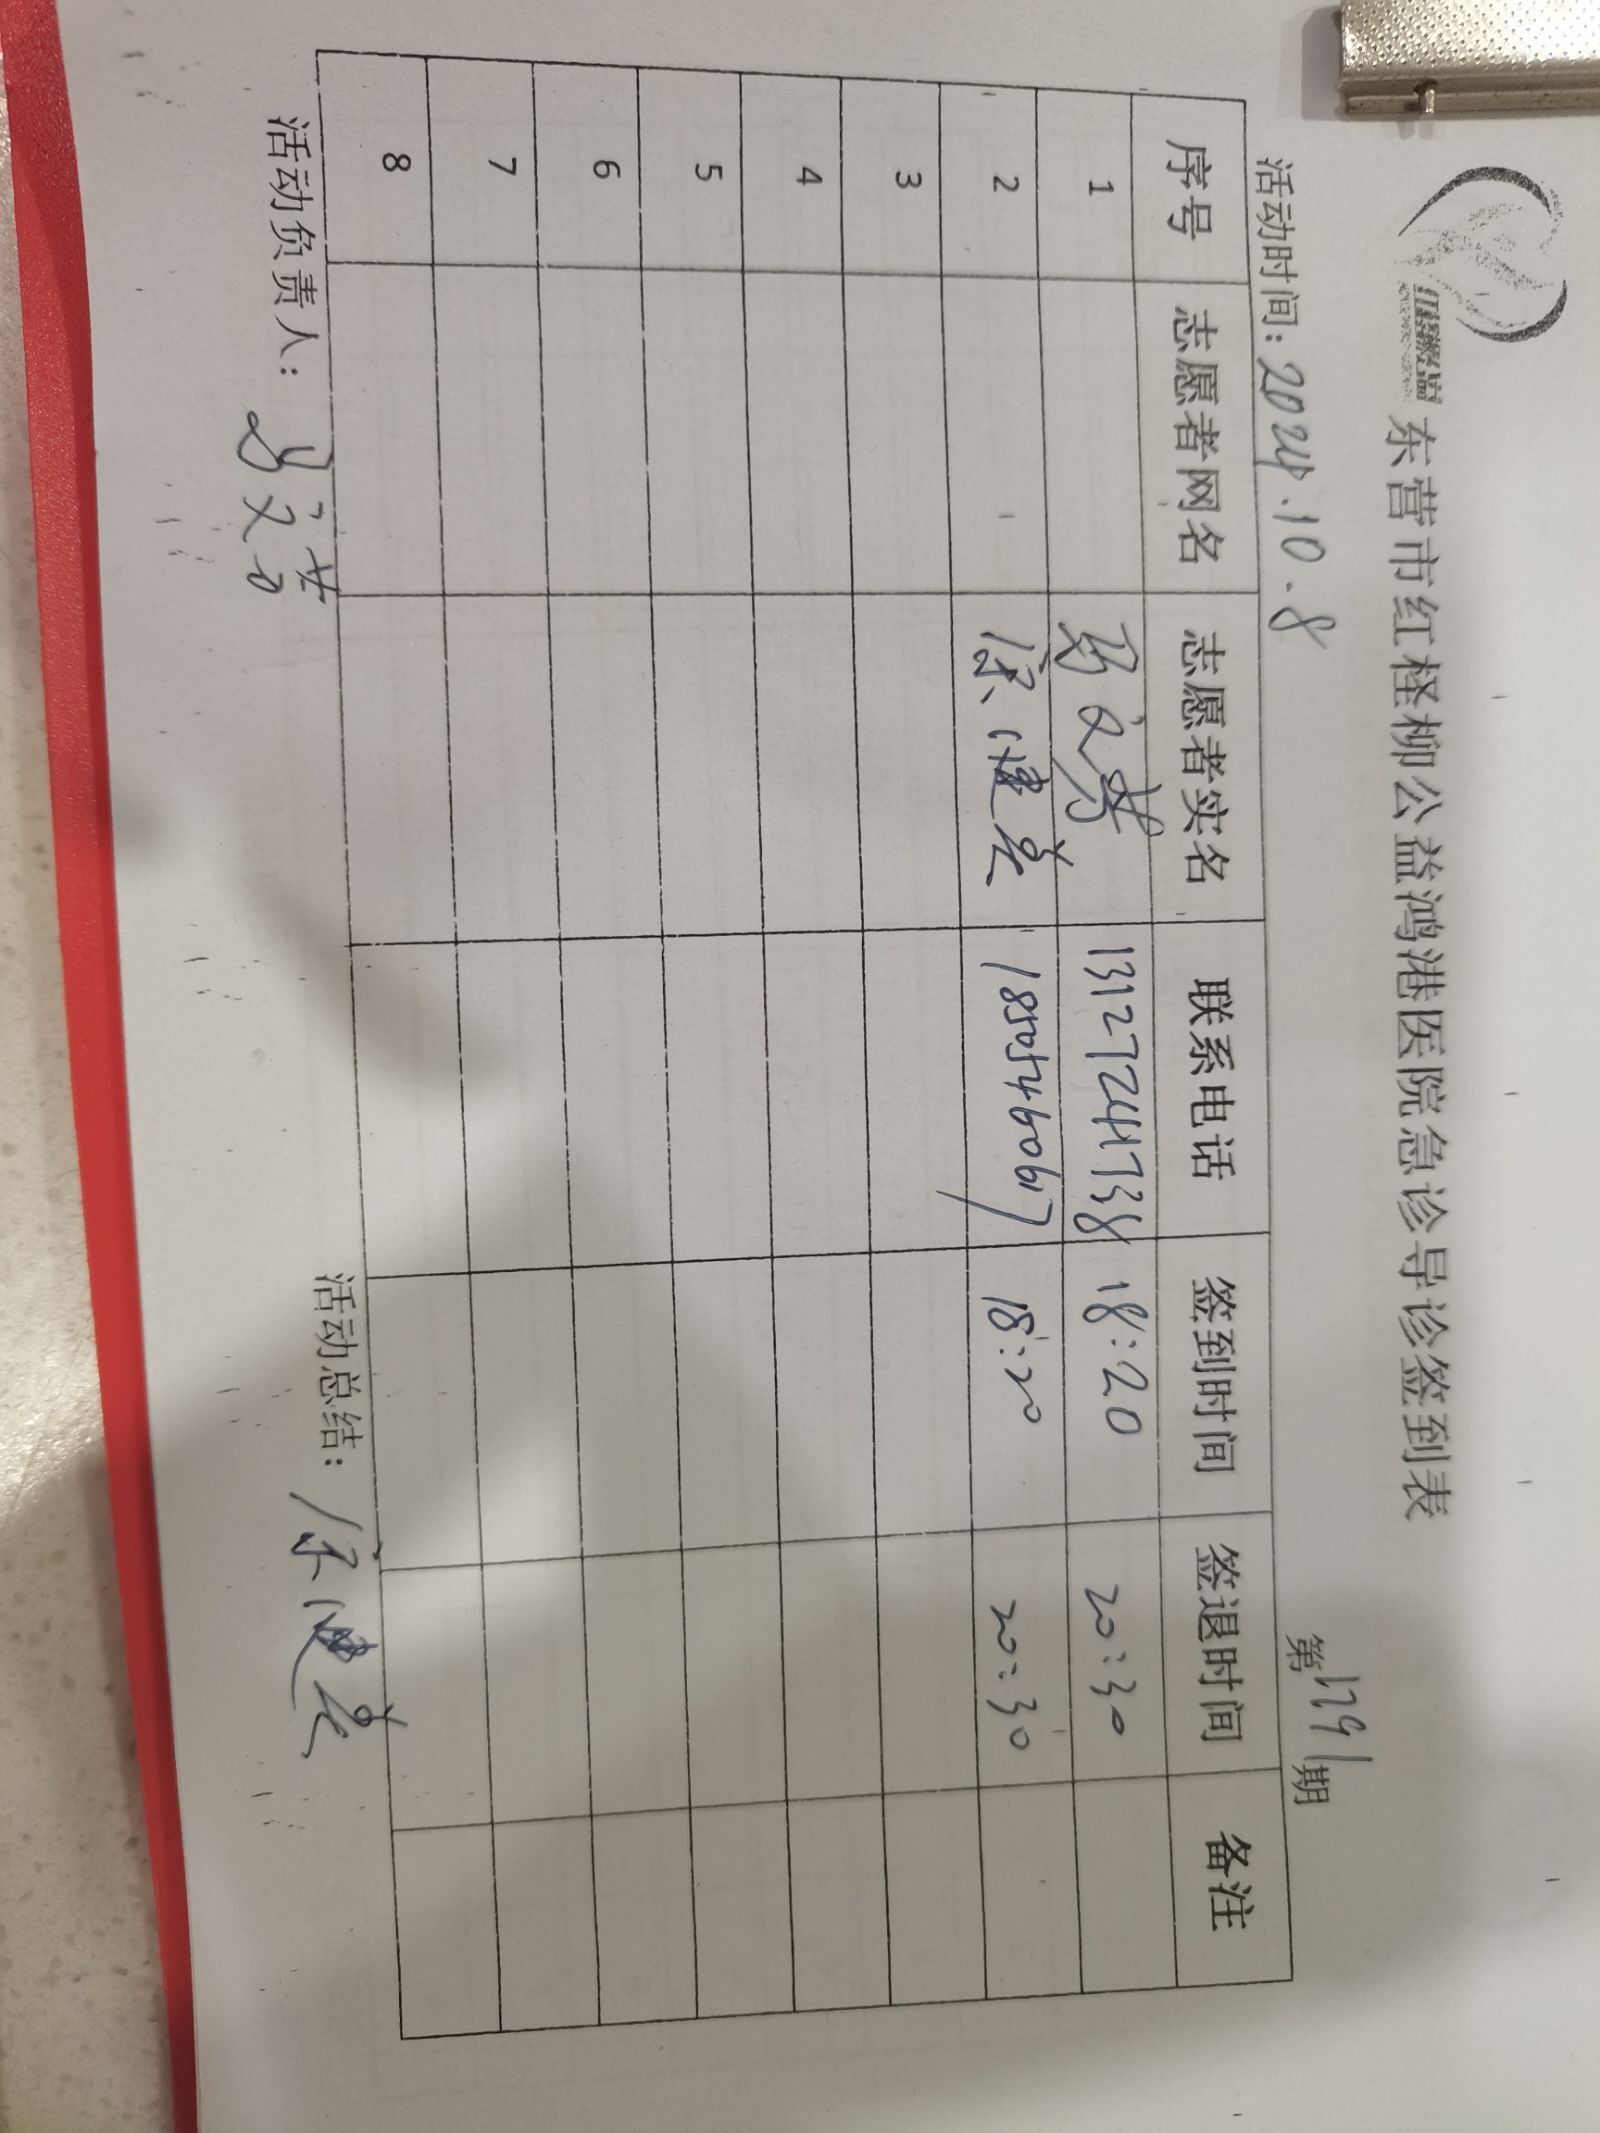 东营市红柽柳公益鸿港医院急诊导诊签到表
活动时间：2024.10.8 第1291期
序号 志愿者网名 志愿者实名 联系电话 签到时间 签退时间 备注
1 13127241738 18:20 20:30
2 18505460617 18:20 20:30
3
4
5
6
7
8
活动负责人： 活动总结：